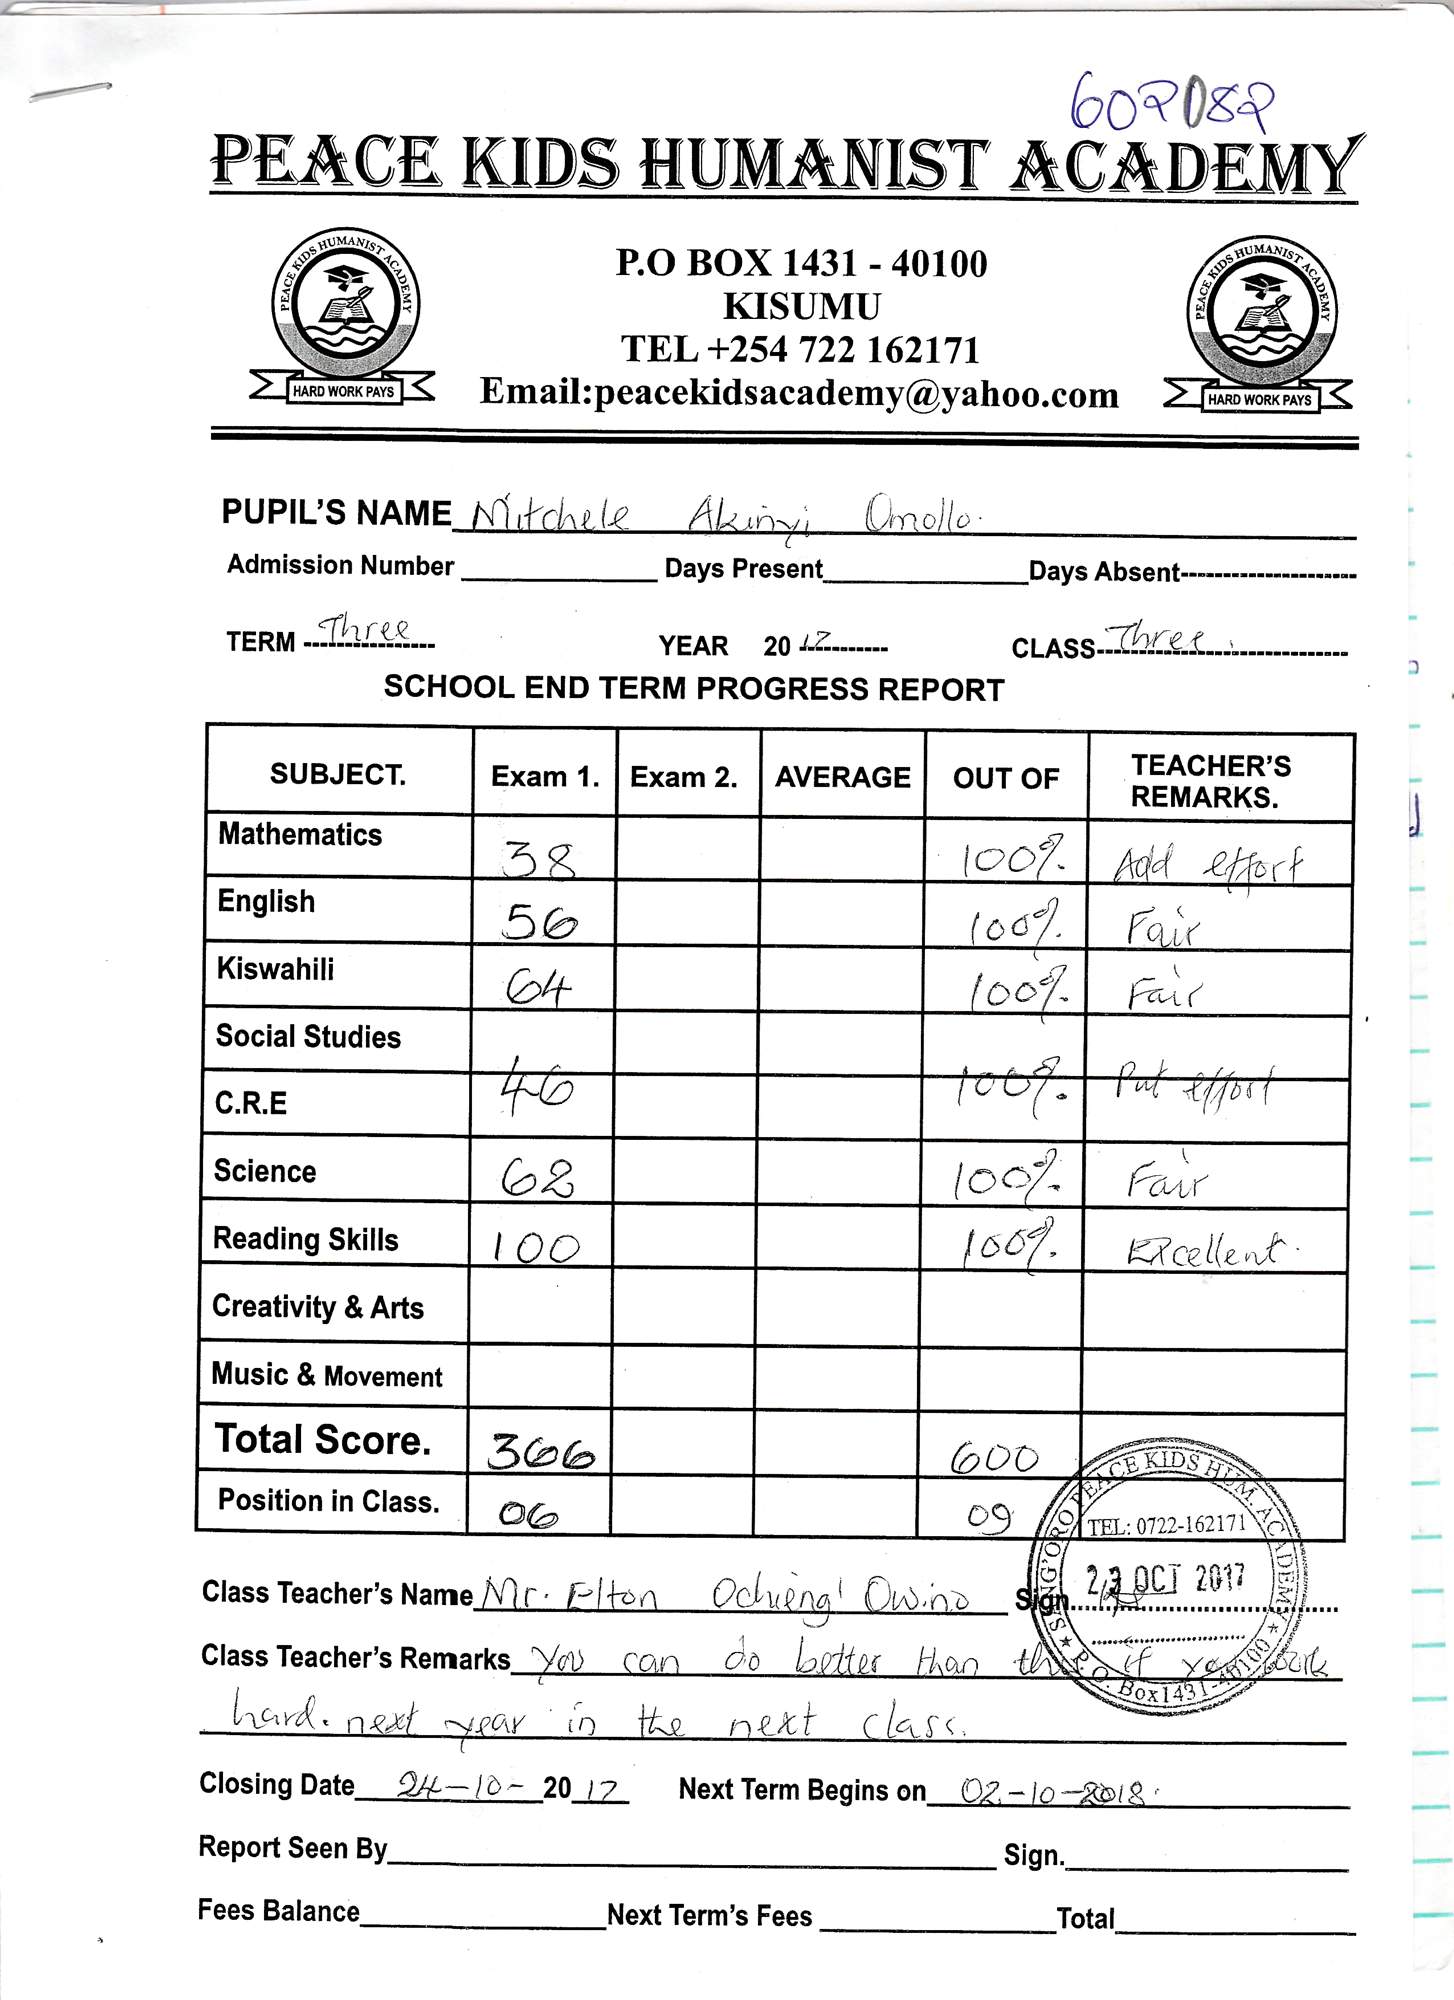 602082
PEACE KIDS HUMANIST ACADEMY
PEACE KIDS HUMANIST ACADEMY
HARD WORK PAYS
P.O BOX 1431 - 40100
KISUMU
TEL +254 722 162171
Email:peacekidsacademy@yahoo.com
PEACE KIDS HUMANIST ACADEMY
HARD WORK PAYS
PUPIL'S NAME Mitchele Akinyi Omollo.
Admission Number Days Present Days Absent
TERM Three YEAR 2017 CLASS Three
SCHOOL END TERM PROGRESS REPORT
SUBJECT. Exam 1. Exam 2. AVERAGE OUT OF TEACHER'S REMARKS.
Mathematics 38 100% Add effort
English 56 100% Fair
Kiswahili 64 100% Fair
Social Studies
C.R.E 46 100% Put effort
Science 62 100% Fair
Reading Skills 100 100% Excellent.
Creativity & Arts
Music & Movement
Total Score. 366 600
Position in Class. 06 09
SANG'ORO PEACE KIDS HUM. ACADEMY
TEL: 0722-162171
23 OCT 2017
P.O. Box 1431-40100
Class Teacher's Name Mr. Elton Ochieng' Owino Sign.
Class Teacher's Remarks You can do better than this if you work
hard. next year in the next class.
Closing Date 24-10-2017 Next Term Begins on 02-10-2018.
Report Seen By Sign.
Fees Balance Next Term's Fees Total